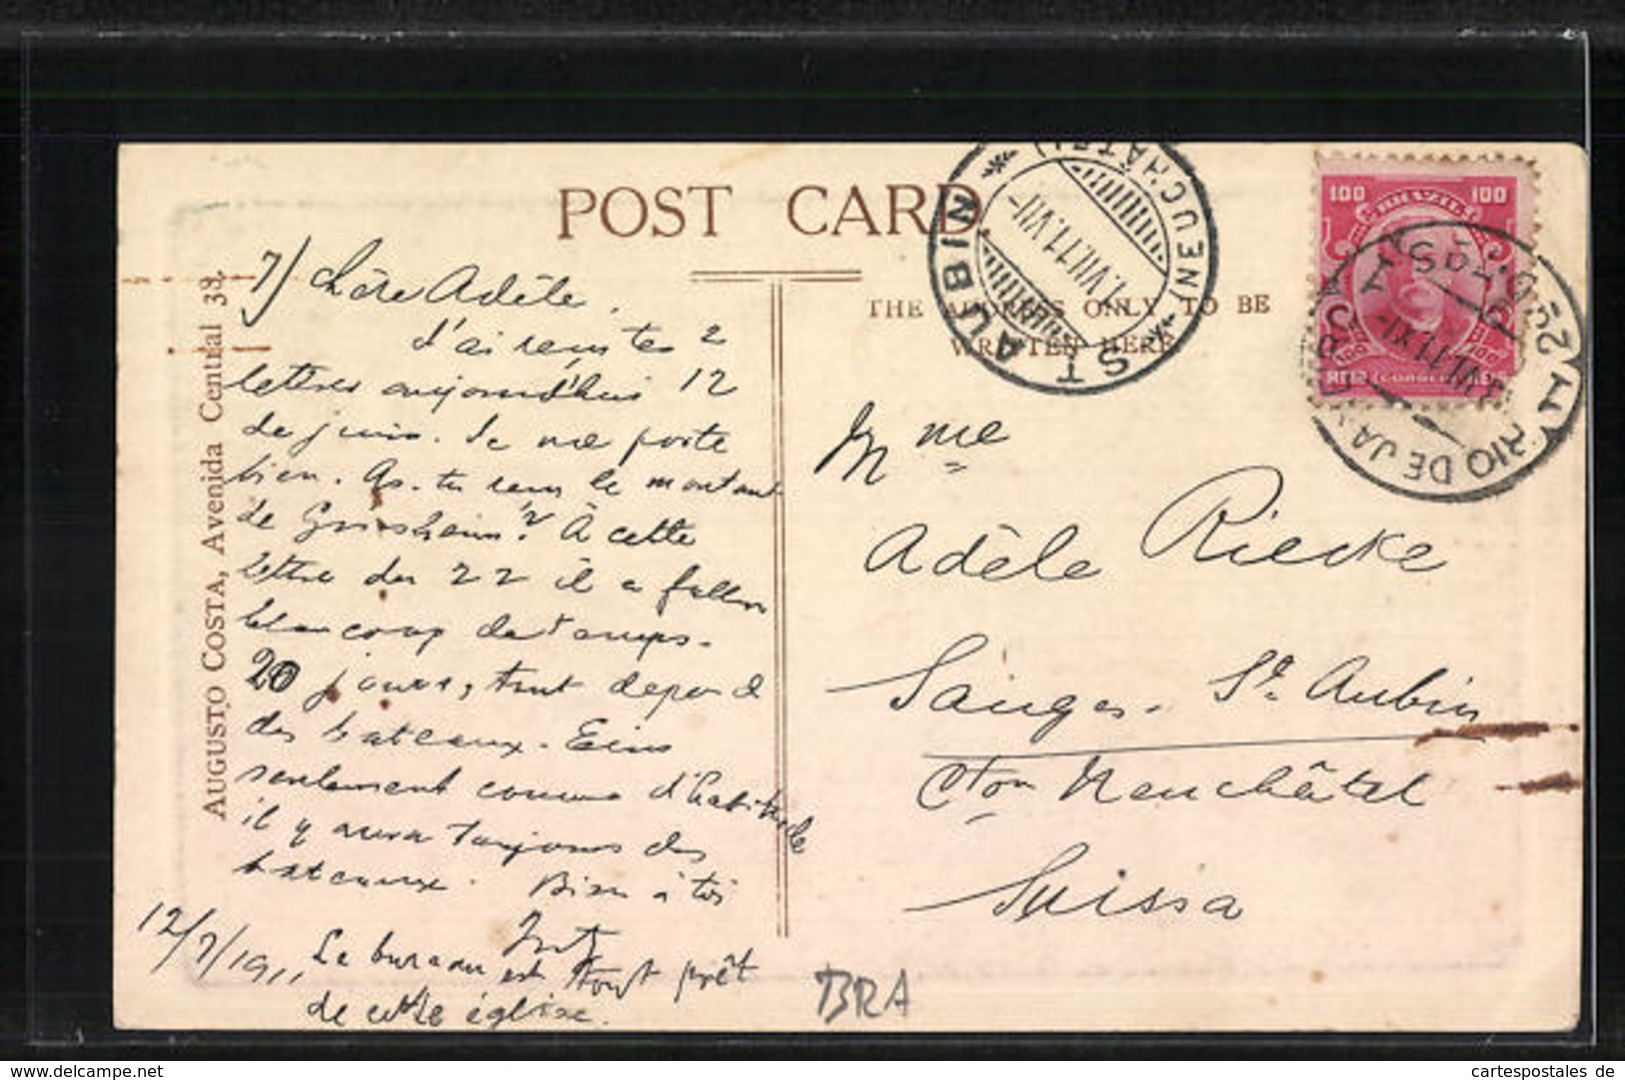 POST CARD
THE ADDRESS ONLY TO BE
WRITTEN HERE.
AUGUSTO COSTA, Avenida Central 38.
7) Chère Adèle.
J'ai reçu tes 2
lettres aujourd'hui 12
de juin. Je me porte
bien. As-tu reçu le montant
de Griesheim? À cette
lettre du 22 il a fallu
beaucoup de temps.
20 jours, tout dépend
des bateaux.
seulement comme d'habitude
il y aura toujours des
bateaux. Bien à toi
12/7/1911
Le bureau est tout prêt
de cette église.
Mme
Adèle Riecke
Sauges. St. Aubin
Cton Neuchâtel
Suissa
BRA
ST AUBIN (NEUCHÂTEL)
11.VII.11.VII-
BRAZIL
100 100
REIS REIS
RIO DE JANEIRO
cartespostales.de